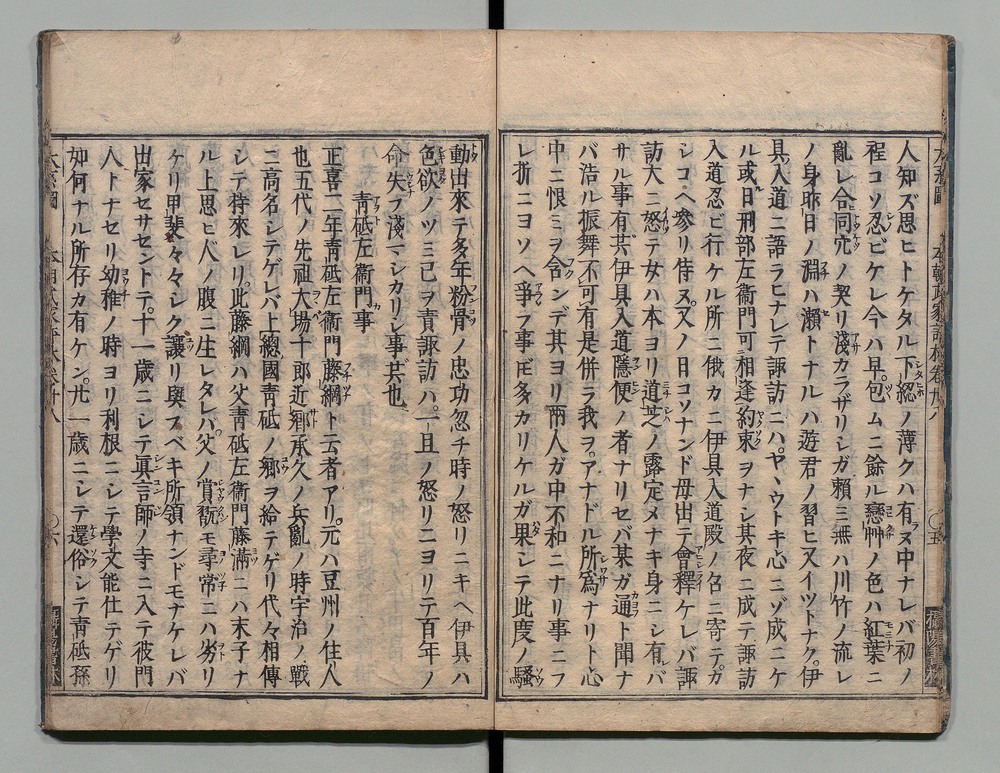 人知ズ思ヒトケタル下總ノ薄クハ有ヌ中ナレバ初ノ
程コソ忍ビケレ今ハ早包ムニ餘ル戀艸ノ色ハ紅葉ニ
亂レ合同穴ノ契リ淺カラザリシガ賴ミ無ハ川竹ノ流レ
ノ身昨日ノ淵ハ瀬トナルハ遊君ノ習ヒ又イツトナク伊
具入道ニ語ラヒナレテ諏訪ニハヤヽウトキ心ニゾ成ニケ
ル或日刑部左衛門可相逢約束ヲナシ其夜ニ成テ諏訪
入道忍ビ行ケル所ニ俄カニ伊具入道殿ノ召ニ寄テガ
シコヘ參リ侍ヌ又ノ日コソナンド母出テ會釋ケレバ諏
訪大ニ怒テ女ハ本ヨリ道芝ノ露定メナキ身ニシ有レバ
サル事有共伊具入道隱便ノ者ナリセバ某ガ通ト聞ナ
バ浩ル振舞不可有是併ラ我ヲアナドル所爲ナリト心
中ニ恨ミヲ含ンデ其ヨリ兩人ガ中不和ニナリ事ニフ
レ折ニヨソヘ爭フ事𪜈多カリケルガ果シテ此度ノ騷
動出來テ多年粉骨ノ忠功忽チ時ノ怒リニキヘ伊具ハ
色欲ノツミ己ヲ責諏訪ハ一旦ノ怒リニヨリテ百年ノ
命失フ淺マシカリシ事共也
靑砥左衞門事
正喜二年靑砥左衞門藤綱ト云者アリ元ハ豆州ノ住人
也五代ノ先祖大場十郎近鄕承久ノ兵亂ノ時宇治ノ戰
ニ高名シテゲレバ上總國靑砥ノ鄕ヲ給テゲリ代々相傳
シテ持來レリ此藤綱ハ父靑砥左衞門藤滿ニハ末子ナ
ル上思ヒ人ノ腹ニ生レタレバ父ノ賞翫モ尋常ニハ劣リ
ケリ甲斐々々シク讓リ與フベキ所領ナンドモナケレバ
出家セサセントテ十一歲ニシテ眞言師ノ寺ニ入テ彼門
人トナセリ幼稚ノ時ヨリ利根ニシテ學文能仕テゲリ
如何ナル所存カ有ケン廿一歲ニシテ還俗シテ靑砥孫